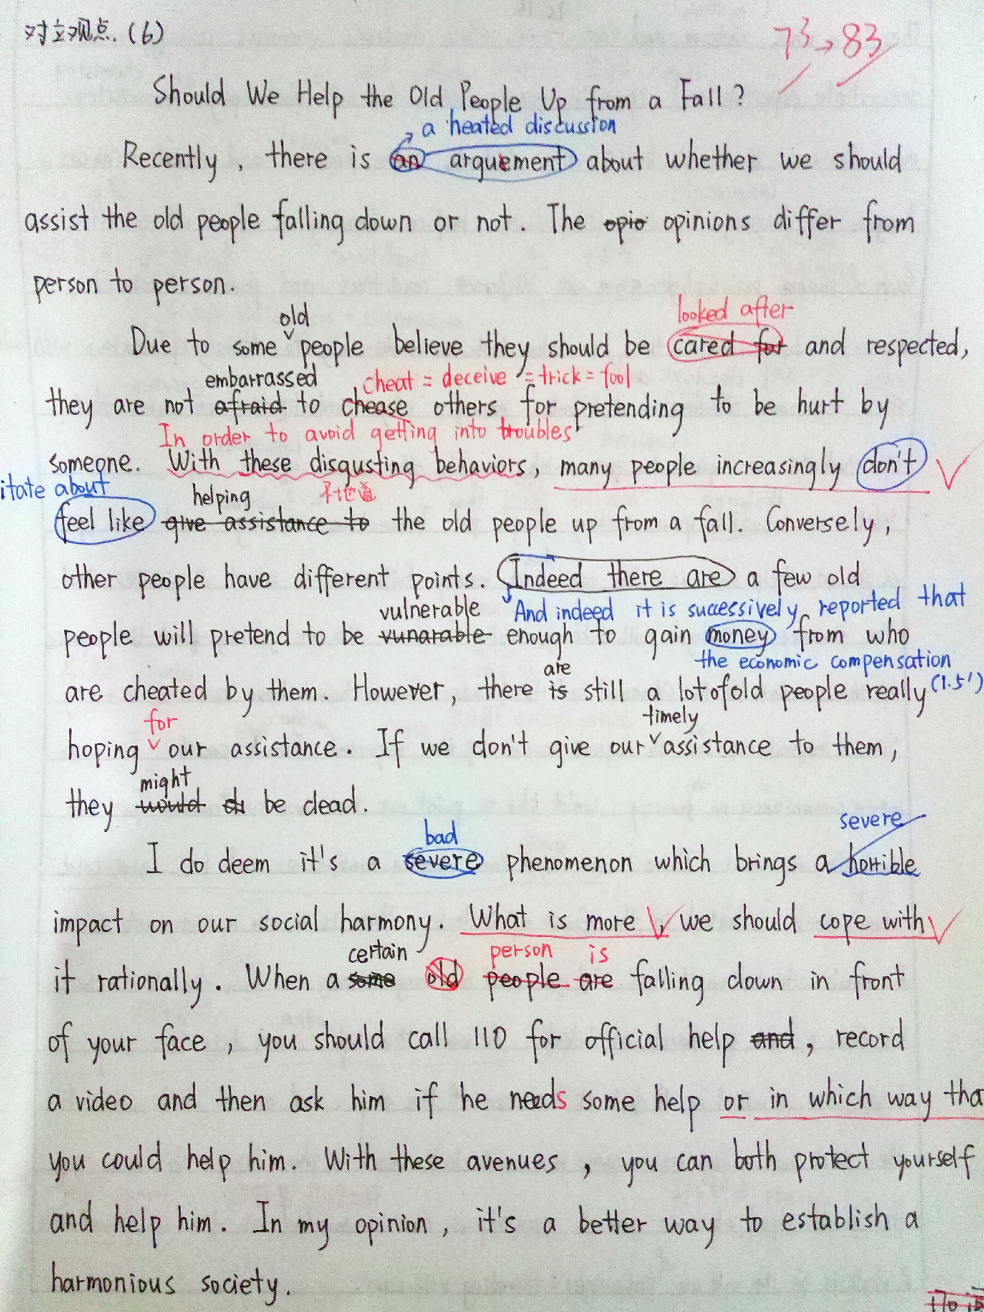 对立观点. (6)
7³→83
Should We Help the Old People Up from a Fall?
a heated discussion
Recently, there is an arguement about whether we should
assist the old people falling down or not. The opio opinions differ from
person to person.
old looked after
Due to some people believe they should be cared for and respected,
embarrassed cheat = deceive = trick = fool
they are not afraid to chease others for pretending to be hurt by
In order to avoid getting into troubles
someone. With these disgusting behaviors, many people increasingly don't
itate about helping 不地道
feel like give assistance to the old people up from a fall. Conversely,
other people have different points. Indeed there are a few old
vulnerable And indeed it is successively reported that
people will pretend to be vunarable enough to gain money from who
are the economic compensation
are cheated by them. However, there is still a lot of old people really (1.5')
for timely
hoping our assistance. If we don't give our assistance to them,
might
they would di be dead.
bad severe
I do deem it's a severe phenomenon which brings a horrible
impact on our social harmony. What is more, we should cope with
certain person is
it rationally. When a some old people are falling down in front
of your face, you should call 110 for official help and, record
a video and then ask him if he needs some help or in which way tha
you could help him. With these avenues, you can both protect yourself
and help him. In my opinion, it's a better way to establish a
harmonious society.